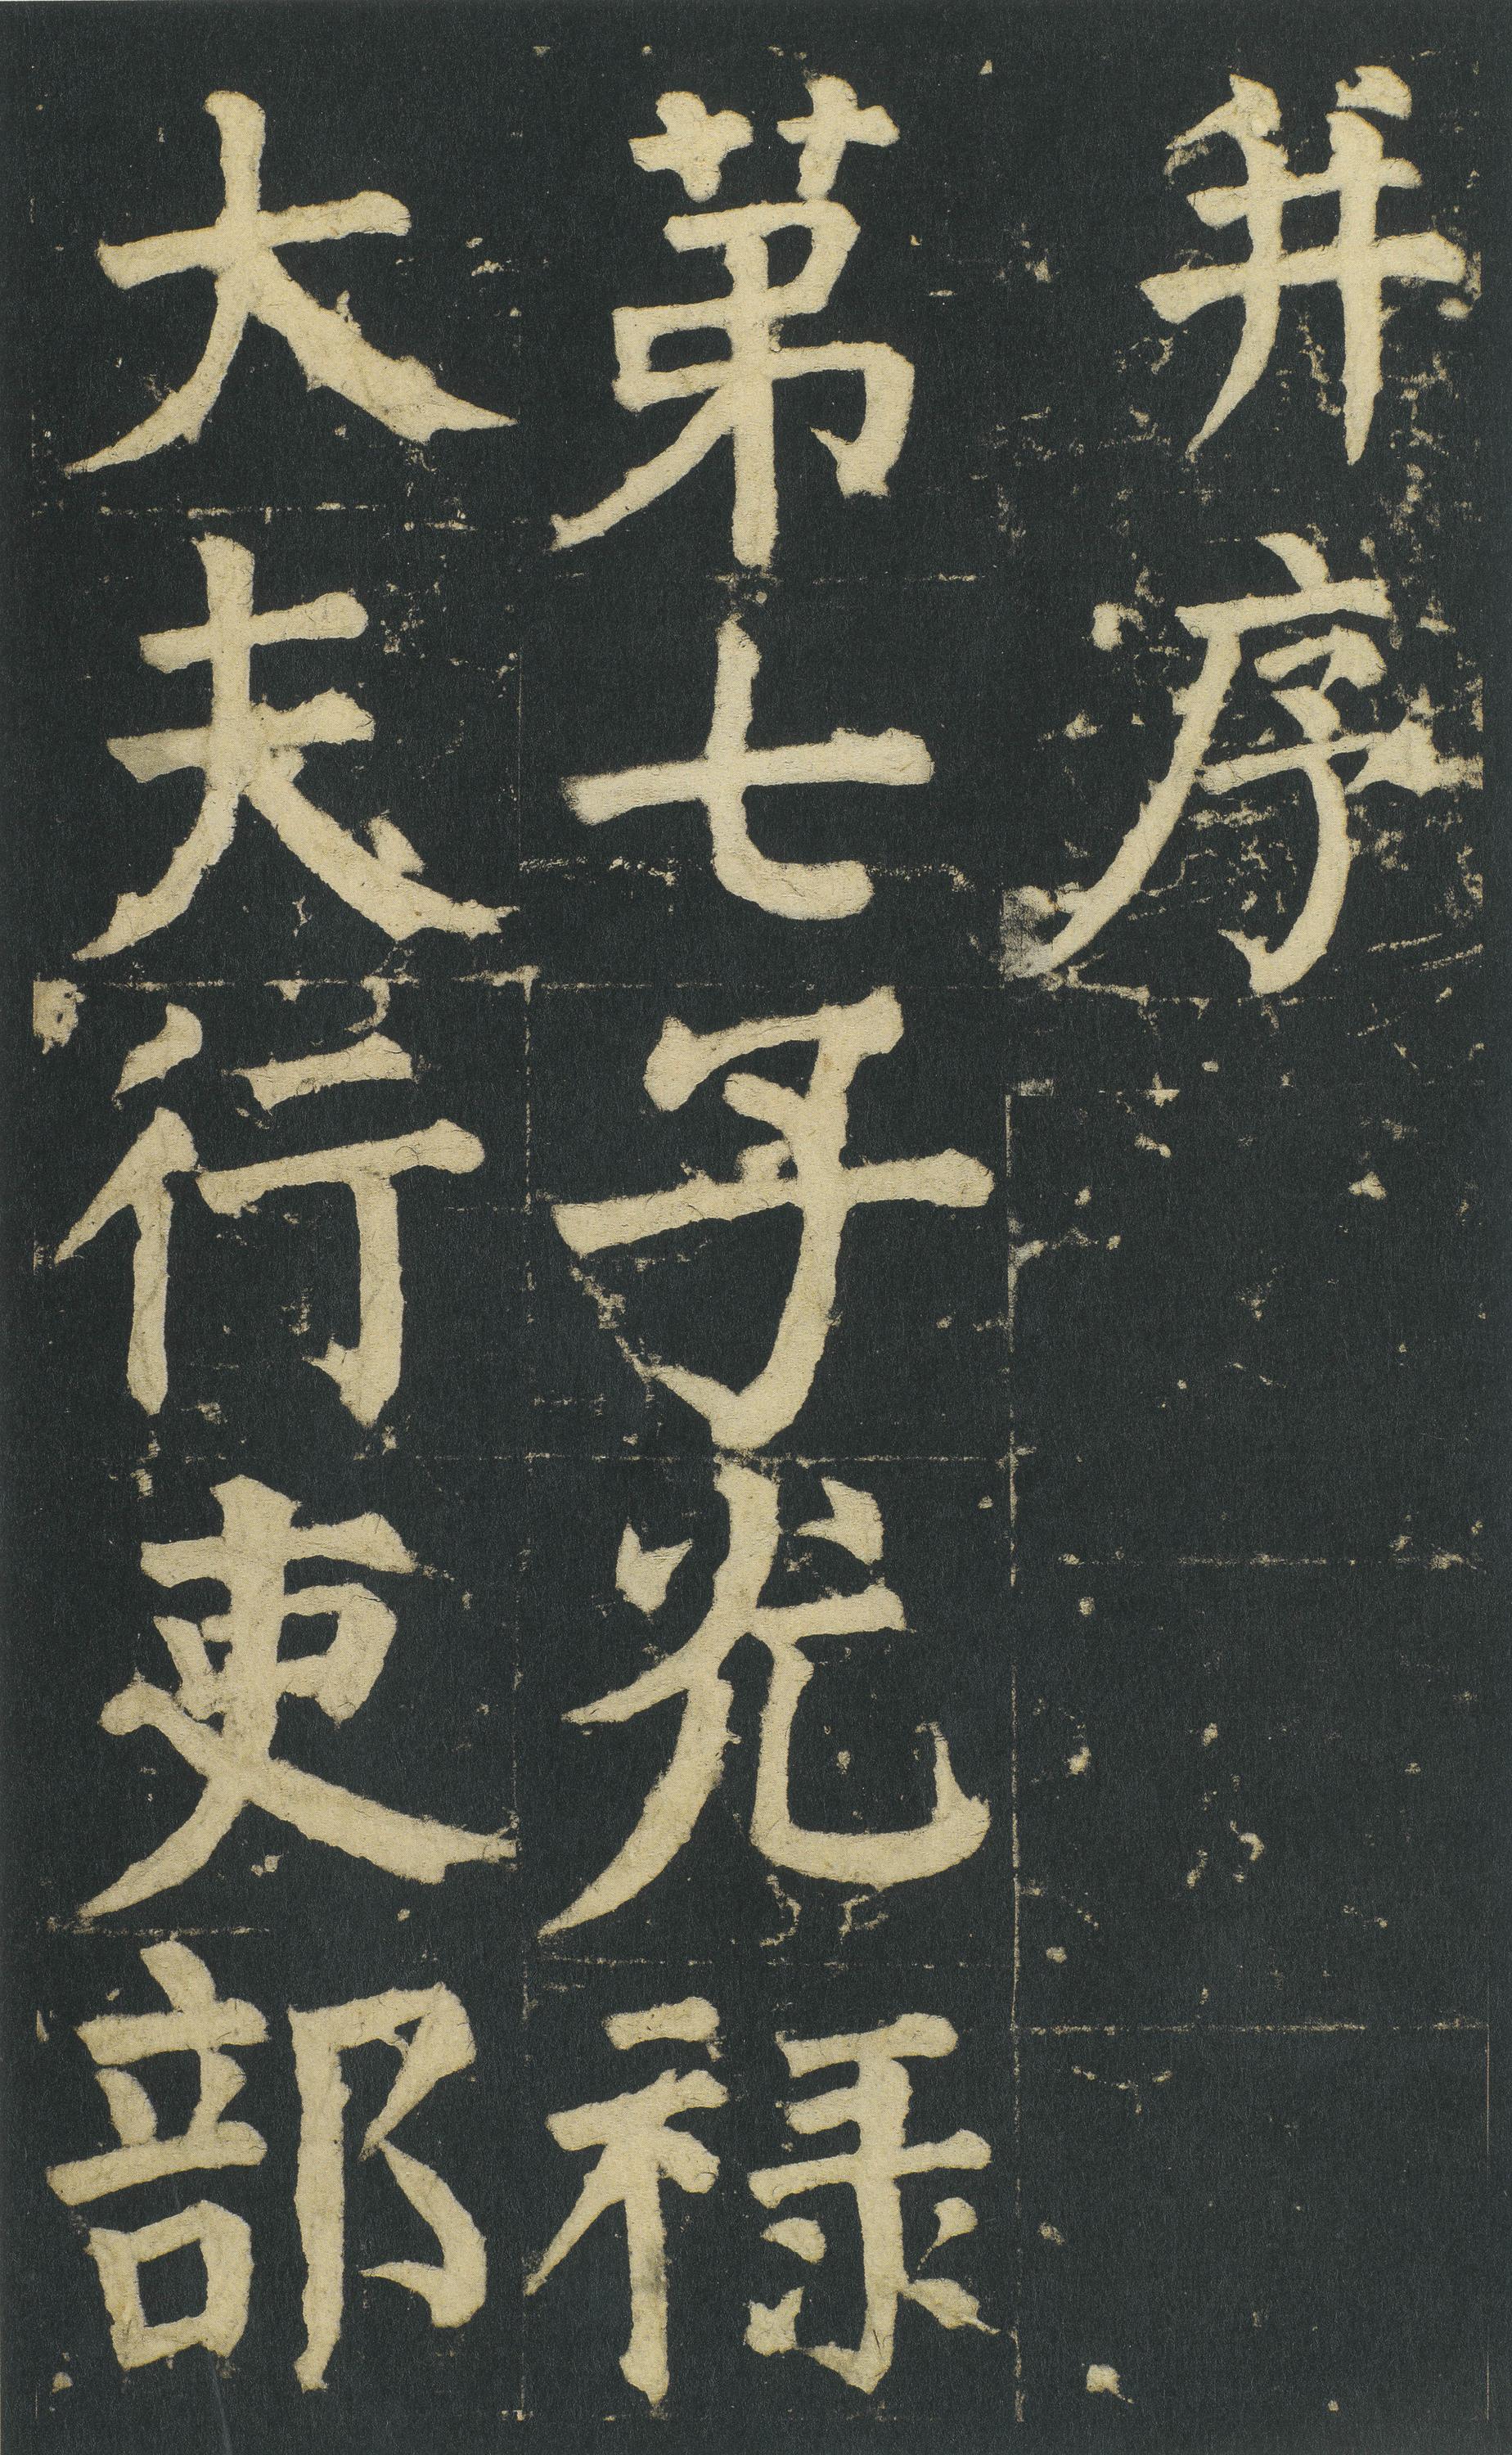 并序
第七子光禄
大夫行吏部